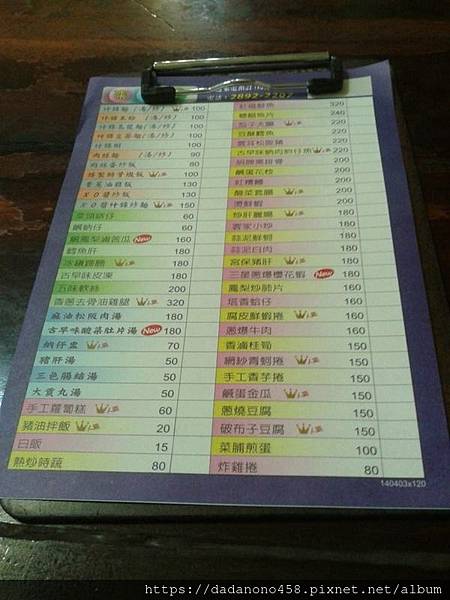 2892-2207
什錦麵 (湯/炒) 100
什錦米粉 (湯/炒) 100
什錦烏龍麵(湯/炒) 100
什錦意麵(湯/炒) 100
什錦粥 100
肉絲麵 (湯/炒) 90
肉絲蛋炒飯 80
100
蔥蔥油雞飯 130
XO醬炒飯 130
XO醬什錦炒麵 150
60
鹹蚋仔 60
鳳梨鹹苦瓜 New 160
鱈魚肝 180
180
古早味皮凍 180
五味軟絲 200
香蔥去骨油雞腿 320
麻油松阪肉湯 180
古早味酸菜肚片湯 New 180
蚋仔湯 70
豬肝湯 50
三色腸結湯 50
大貢丸湯 50
手工蘿蔔糕 60
豬油拌飯 20
白飯 15
熱炒時蔬 80
320
糖醋魚片 240
茄子大腸 220
豆酥鱈魚 220
220
古早味蚋肉蚵仔魚 220
200
鹹蛋花枝 200
紅糟鰻 200
酸菜蕊腸 200
燙鮮蝦 200
炒肝麗腸 180
客家小炒 180
蒜泥鮮蚵 180
蒜泥白肉 180
宮保豬肝 180
三星蔥爆櫻花蝦 New 180
鳳梨炒肺片 160
塔香蛤仔 160
腐皮鮮蝦捲 160
蔥爆牛肉 160
香滷桂筍 150
網紗青蚵捲 150
手工香芋捲 150
鹹蛋金瓜 150
蔥燒豆腐 150
破布子豆腐 150
菜脯煎蛋 100
炸雞捲 80
140403x120
https://dadanono458.pixnet.net/album